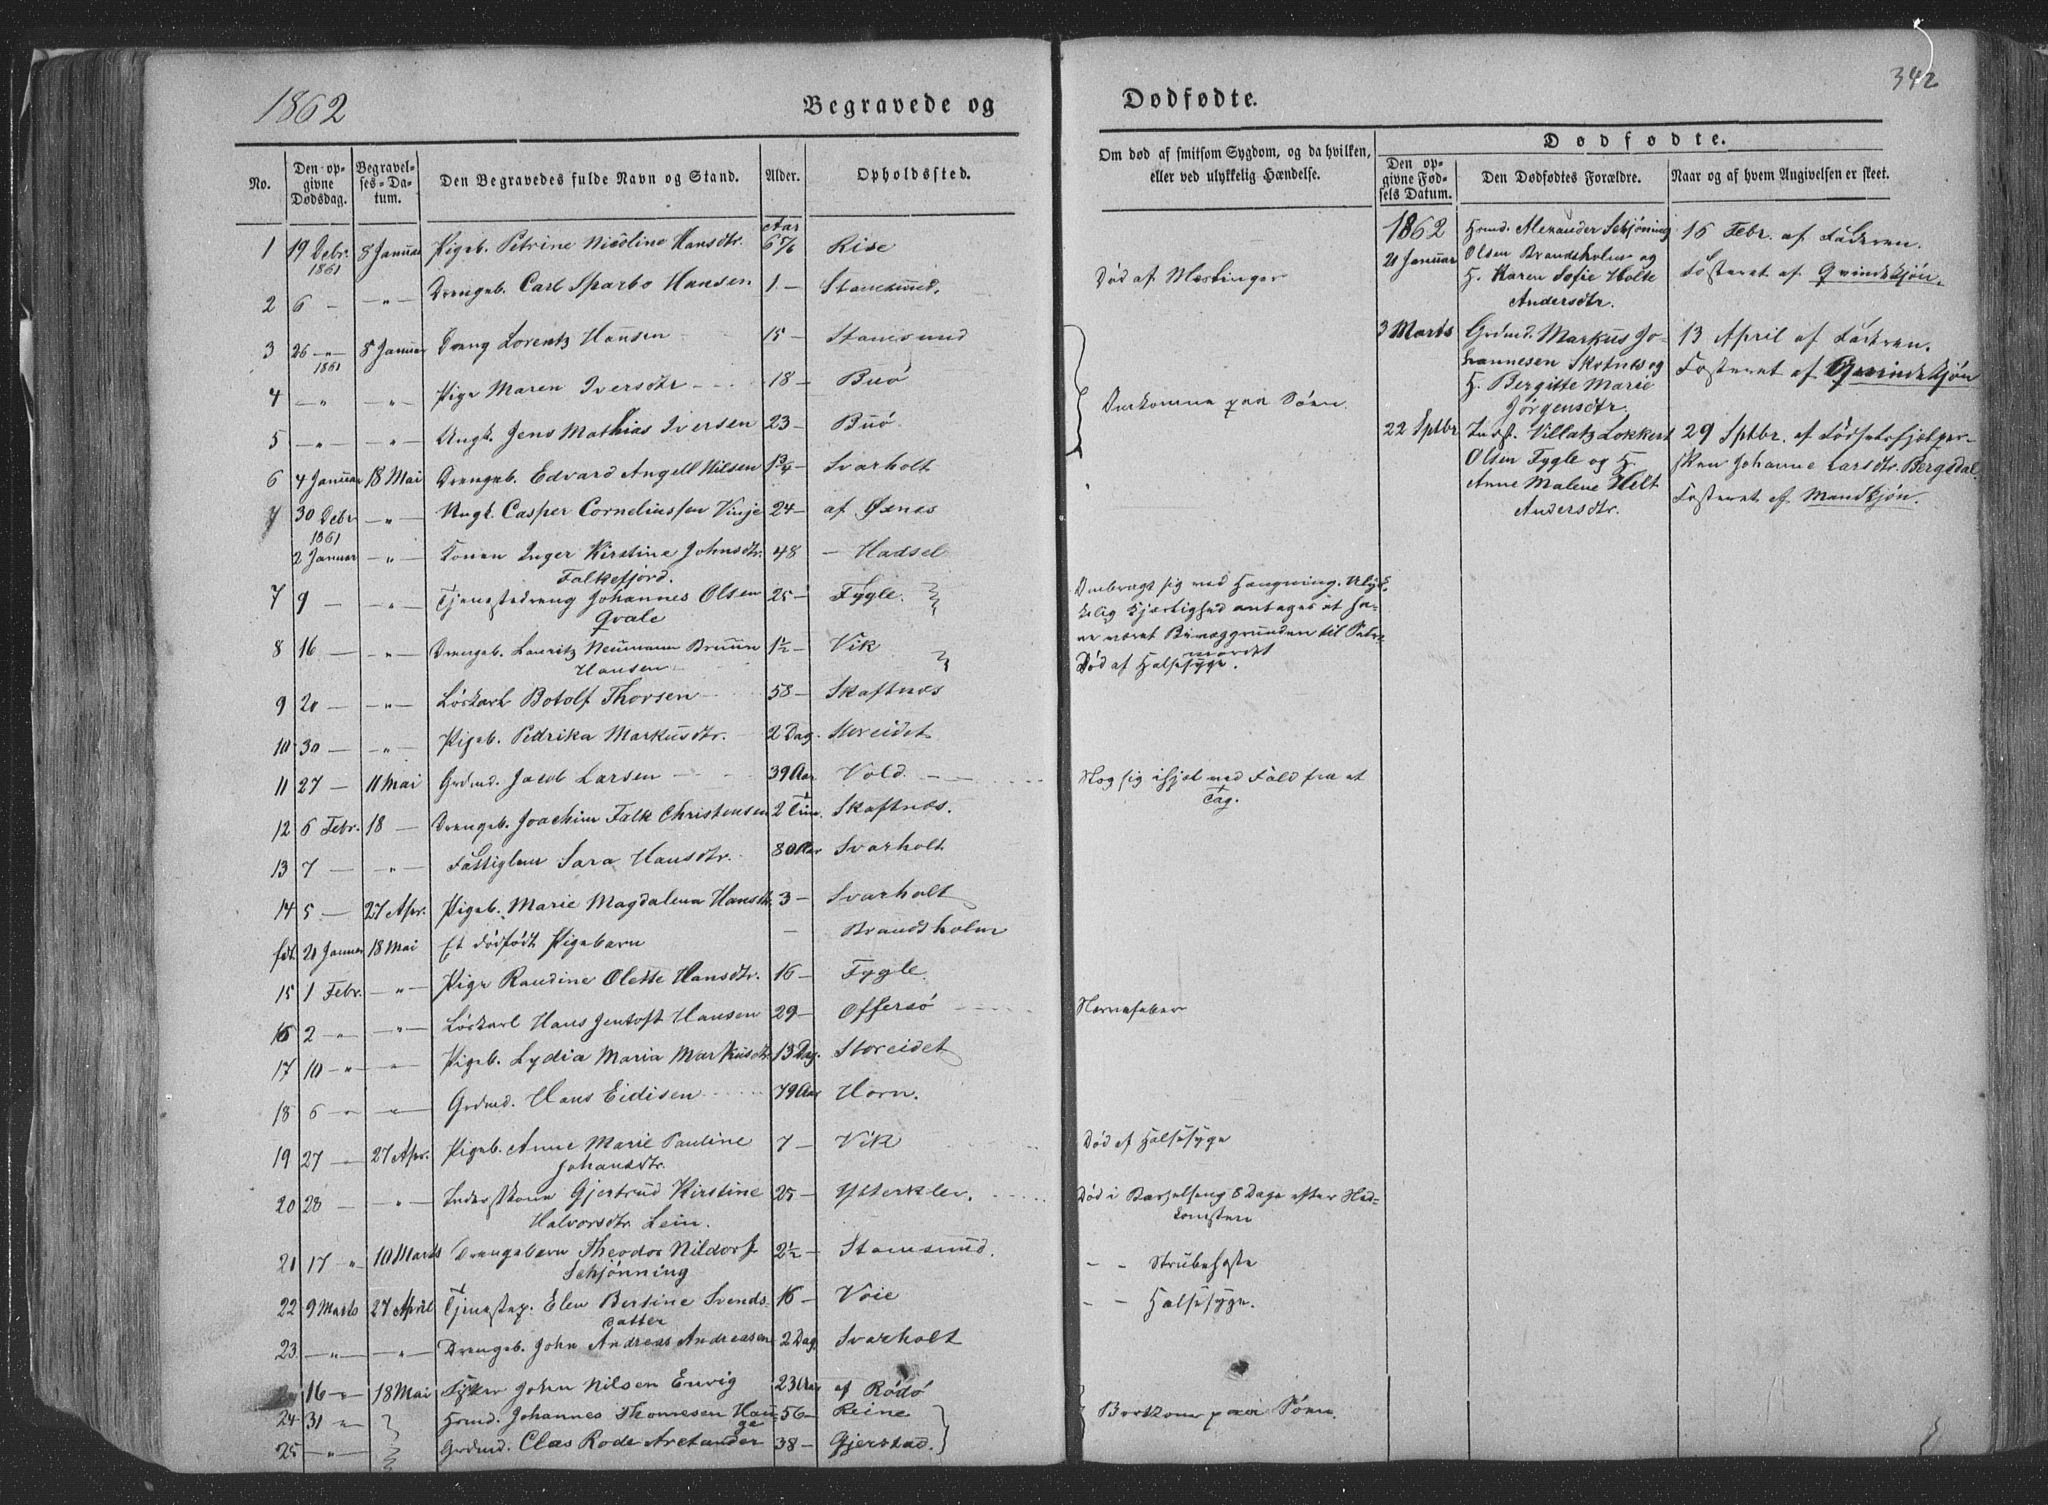 1862 Begravede og Dødfødte. 342
No. Den opgivne Dødsdag. Begravelses-Datum. Den Begravedes fulde Navn og Stand. Alder. Opholdssted.
Om død af smitsom Sygdom, og da hvilken, eller ved ulykkelig Hændelse.
Dødfødte.
Den opgivne Fødsels Datum. Den Dødfødtes Forældre. Naar og af hvem Angivelsen er skeet.
Aar
1 19 Debr. 1861 8 Januar Pigeb. Petrine Nicoline Hansdtr. 6 Rise
2 6 — — " — Drengeb. Carl Sparbo Hansen 1 — Stamsund. Død af Mæslinger
3 26 — " — 1861 8 Januar Dreng Lorentz Hansen 15 — Stamsund
4 — " — — " — Pige Maren Iversdtr 18 — Buø Omkomne paa Søen.
5 — " — — " — Ungk. Jens Mathias Iversen 23 — Buø.
6 4 Januar 18 Mai Drengeb. Edvard Angell Nilsen 1 3/4 — Svarholt
30 Debr 1861 — " — Ungk. Casper Corneliussen Vinje 24 — af Øxnes
2 Januar — " — Konen Inger Kirstine Johnsdtr. 48 — Hadsel
Falkefjord.
7 9 — — " — Tjenestedreng Johannes Olsen 25 — Fygle.
Qvale
Ombragt sig ved Hængning. Ulyk-
kelig Kjærlighed antages at ha-
ve været Bevæggrunden til Selv-
mordet
8 16 — — " — Drengeb. Lauritz Neumann Bruun 1 1/2 — Vik Død af Halsesyge.
Hansen
9 20 — — " — Løskarl Botolf Thorsen 58 — Skaftnæs
10 30 — — " — Pigeb. Pedrika Markusdtr. 2 Dag. Storeidet
11 27 — 11 Mai Grdmd. Jacob Larsen 39 Aar Vold Slog sig ihjel ved Fald fra et
Tag.
12 6 Febr. 18 — Drengeb. Joachim Falk Christensen 2 Tim. Skaftnæs.
13 7 — — " — Fattiglem Sara Hansdtr. 80 Aar Svarholt
14 5 — 27 Apr. Pigeb. Marie Magdalena Hansdtr. 3 — Svarholt
fdt. 20 Januar 18 Mai Et dødfødt Pigebarn — Brandsholm
15 1 Febr. — " — Pige Randine Olette Hansdtr. 16 — Fygle
16 2 — " — — " — Løskarl Hans Jentoft Hansen 29 — Offersø Nervefeber
17 10 — " — — " — Pigeb. Lydia Maria Markusdtr. 13 Dag. Storeidet
18 6 — " — — " — Grdmd. Hans Eidisen 79 Aar Horn.
19 27 — 27 Apr. Pigeb. Anne Marie Pauline 7 — Vik Død af Halsesyge
Johansdtr.
20 28 — — " — Inderstkone Gjertrud Kirstine 25 — Ytterklev. Død i Barselseng 8 Dage efter Ned-
Halvorsdtr. Lein. komsten
21 17 " 10 Marts Drengebarn Theodor Nildorf 2 1/2 — Stamsund. — — Strubehoste
Schjønning
22 9 Marts 27 April Tjenestep. Elen Bertine Svends- 16 — Voie — — Halsesyge.
datter
23 — " — — " — Drengeb. John Andreas Andreasen 2 Dag Svarholt
16 — " — 18 Mai John Nilsen Envig 23 Aar af Rødø
24 31 " Hmd. Johannes Thomesen Hau- 56 — Reine Bortkom paa Søen.
ge
25 — " — Grdmd. Claus Rode Arctander 38 — Gjerstad.
1862
20 Januar Hmd. Alexander Schjøning 15 Febr. af Faderen.
Olsen Brandsholm og Fosteret af Qvindekjøn.
H. Karen Sofie Holte
Andersdtr.
3 Marts Grdmd. Markus Jo- 13 April af Faderen.
hannesen Skotnes og Fosteret af Qvindekjøn
H. Bergitte Marie
Jørgensdtr.
22 Sptbr Indst. Villatz Lokkert 29 Sptbr. af Fødselshjælper-
Olsen Fygle og H. sken Johanne Larsdtr. Bergsdal
Anne Malene Helt Fosteret af Mandkjøn.
Andersdtr.